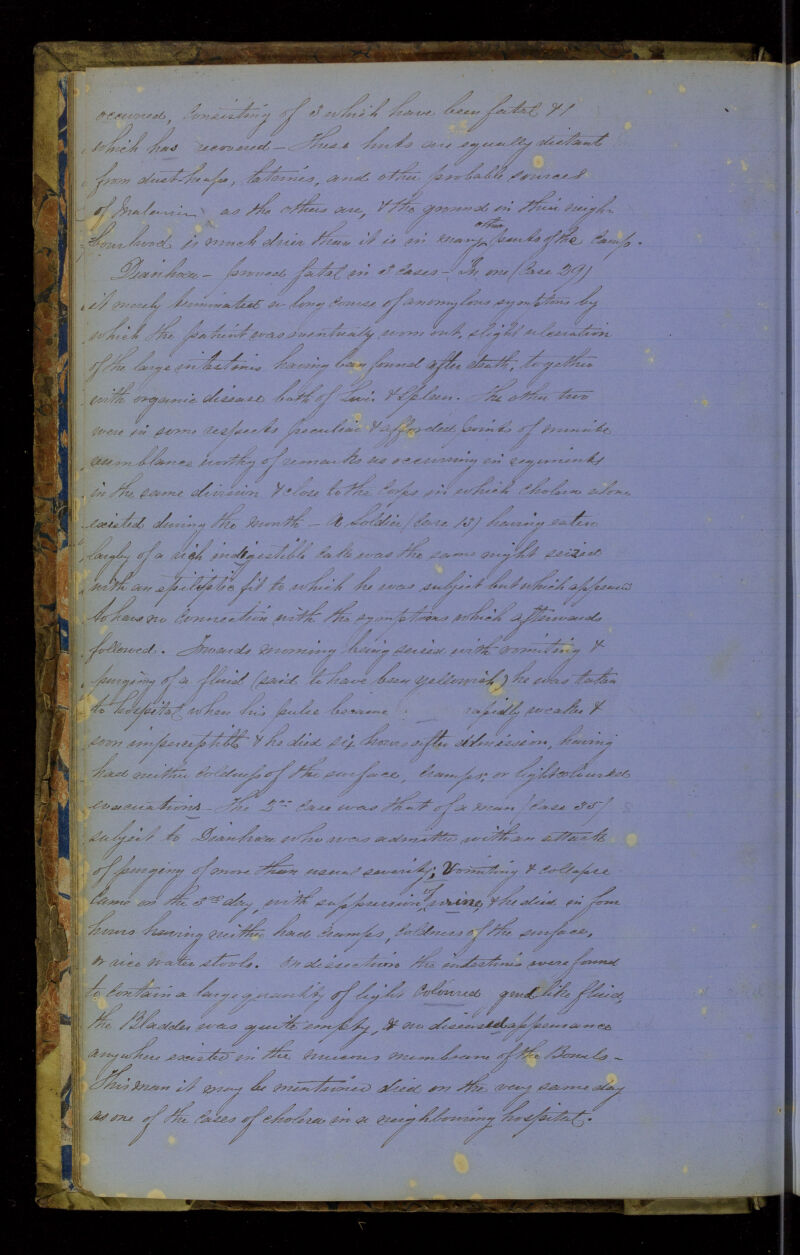 occurred, consisting of 3 which have been fatal & 1
which has recovered - These huts are equally distant
from dust-heaps, latrines, and other probable sources
of Malaria as the others are, & the ground in their neigh-
bourhood is much drier than it is in many other parts of the Camp.
Diarrhœa - proved fatal in 3 cases - In one (Case 29)
it merely terminated a long course of anomylous symptoms by
which the patient was eventually worn out, slight ulceration
of the large intestines having been found after death, together
with organic disease both of Liver & Spleen. The other two
were in some respects peculiar & afforded points of minute
resemblance worthy of remark as occurring in regiments
in the same division & close to the Corps in which Cholera alone
existed during the month - A Soldier (Case 13) having eaten
largely of a rich indigestible cake was the same night seized
with an epileptic fit to which he was subject but which appeared
to have no connection with the symptoms which afterwards
followed. Towards morning being seized with vomiting &
purging of a fluid (said to have been yellowish) he was taken
to hospital when his pulse became rapidly weaker &
soon imperceptible & he died six hours after admission, having
had neither coldness of the surface, Cramps, or light coloured
evacuations - The 2nd case was that of a man (Case 35)
subject to Diarrhœa who was admitted with an attack
of purging of more than usual severity; Vomiting & collapse
came on the 3rd day, with suppression of urine, & he died in four
hours having neither had Cramps, Coldness of the surface,
or rice water stools. On dissection the intestines were found
to contain a large quantity of light coloured gruel like fluid,
the Bladder was quite empty, & no diseased appearance
anywhere existed in the mucous membrane of the Bowels -
This man it may be mentioned died on the very same day
as one of the Cases of cholera in a neighbouring hospital.